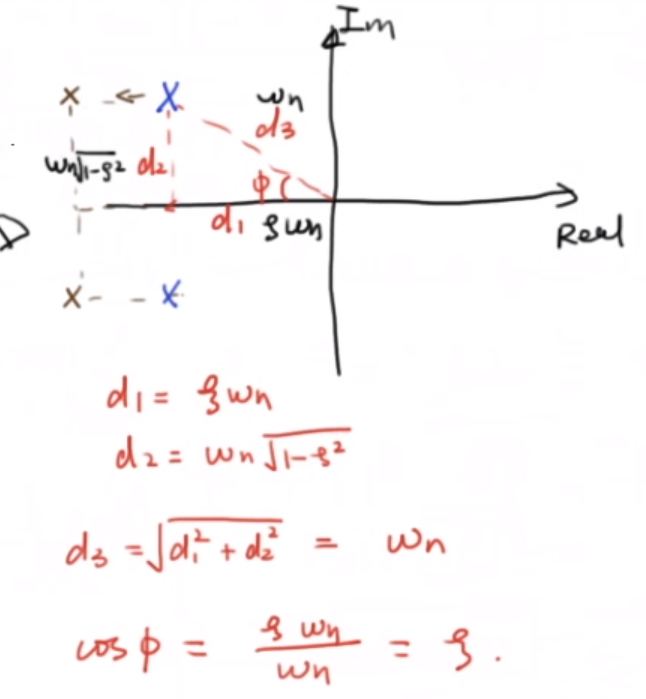 Im
x ← X
ωn
d3
ωn√1-ξ²
d2
φ
d1
ξωn
Real
x
X
d1 = ξωn
d2 = ωn√1-ξ²
d3 = √d1² + d2² = ωn
cos φ = ξωn/ωn = ξ.